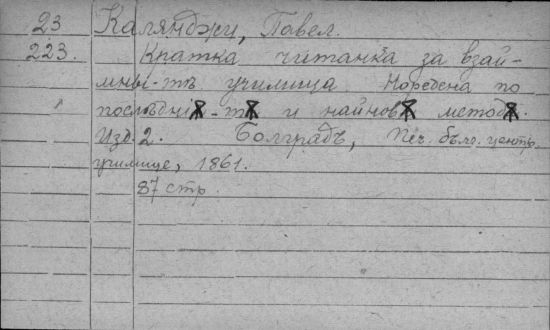 23 Калянджи, Павел.
223. Кратка читанка за взай-
мны-тѣ училища Наредена по
послѣдніѫ-тѫ и найновѫ методѫ.
Изд. 2. Болградъ, Печ. бълг. центр.
училище, 1861.
87 стр.